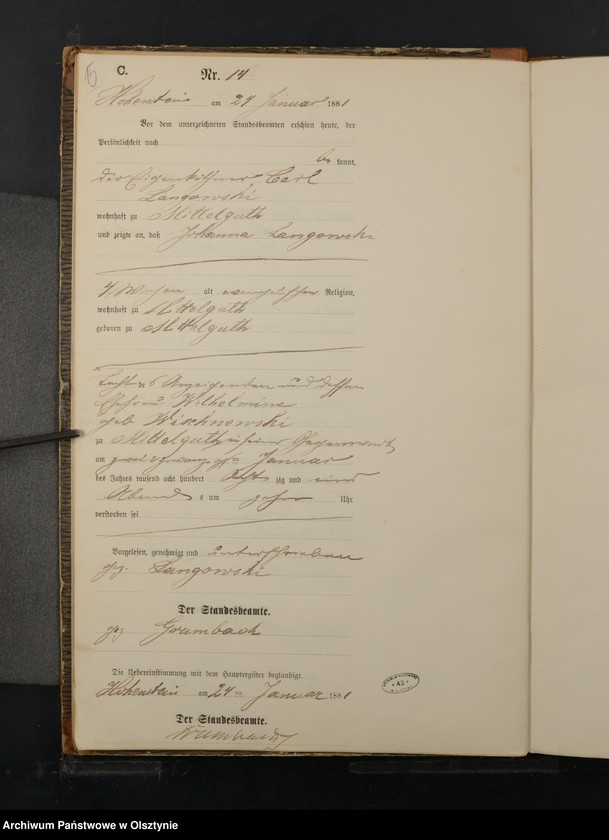 C.
Nr. 14
Hohenstein am 24 Januar 1881
Vor dem unterzeichneten Standesbeamten erschien heute, der
Persönlichkeit nach
be kannt,
der Eigenkäthner Carl
Langowski
wohnhaft zu Mittelguth
und zeigte an, daß Johanna Langowski
4 Wochen alt evangelischer Religion,
wohnhaft zu Mittelguth
geboren zu Mittelguth
Tochter des Anzeigenden und dessen
Ehefrau Wilhelmine
geb Wischnewski
zu Mittelguth in seiner Gegenwart
am zwei und zwanzigsten Januar
des Jahres tausend acht hundert acht zig und eins
Abends um zehn Uhr
verstorben sei
Vorgelesen, genehmigt und unterschrieben
gez. Langowski
Der Standesbeamte.
gez Grumbach
Die Uebereinstimmung mit dem Hauptregister beglaubigt.
Hohenstein am 24 ten Januar 1881
Der Standesbeamte.
Grumbach
Archiwum Państwowe w Olsztynie